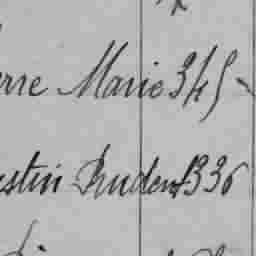 erre Marie 345
estin Prudent 336